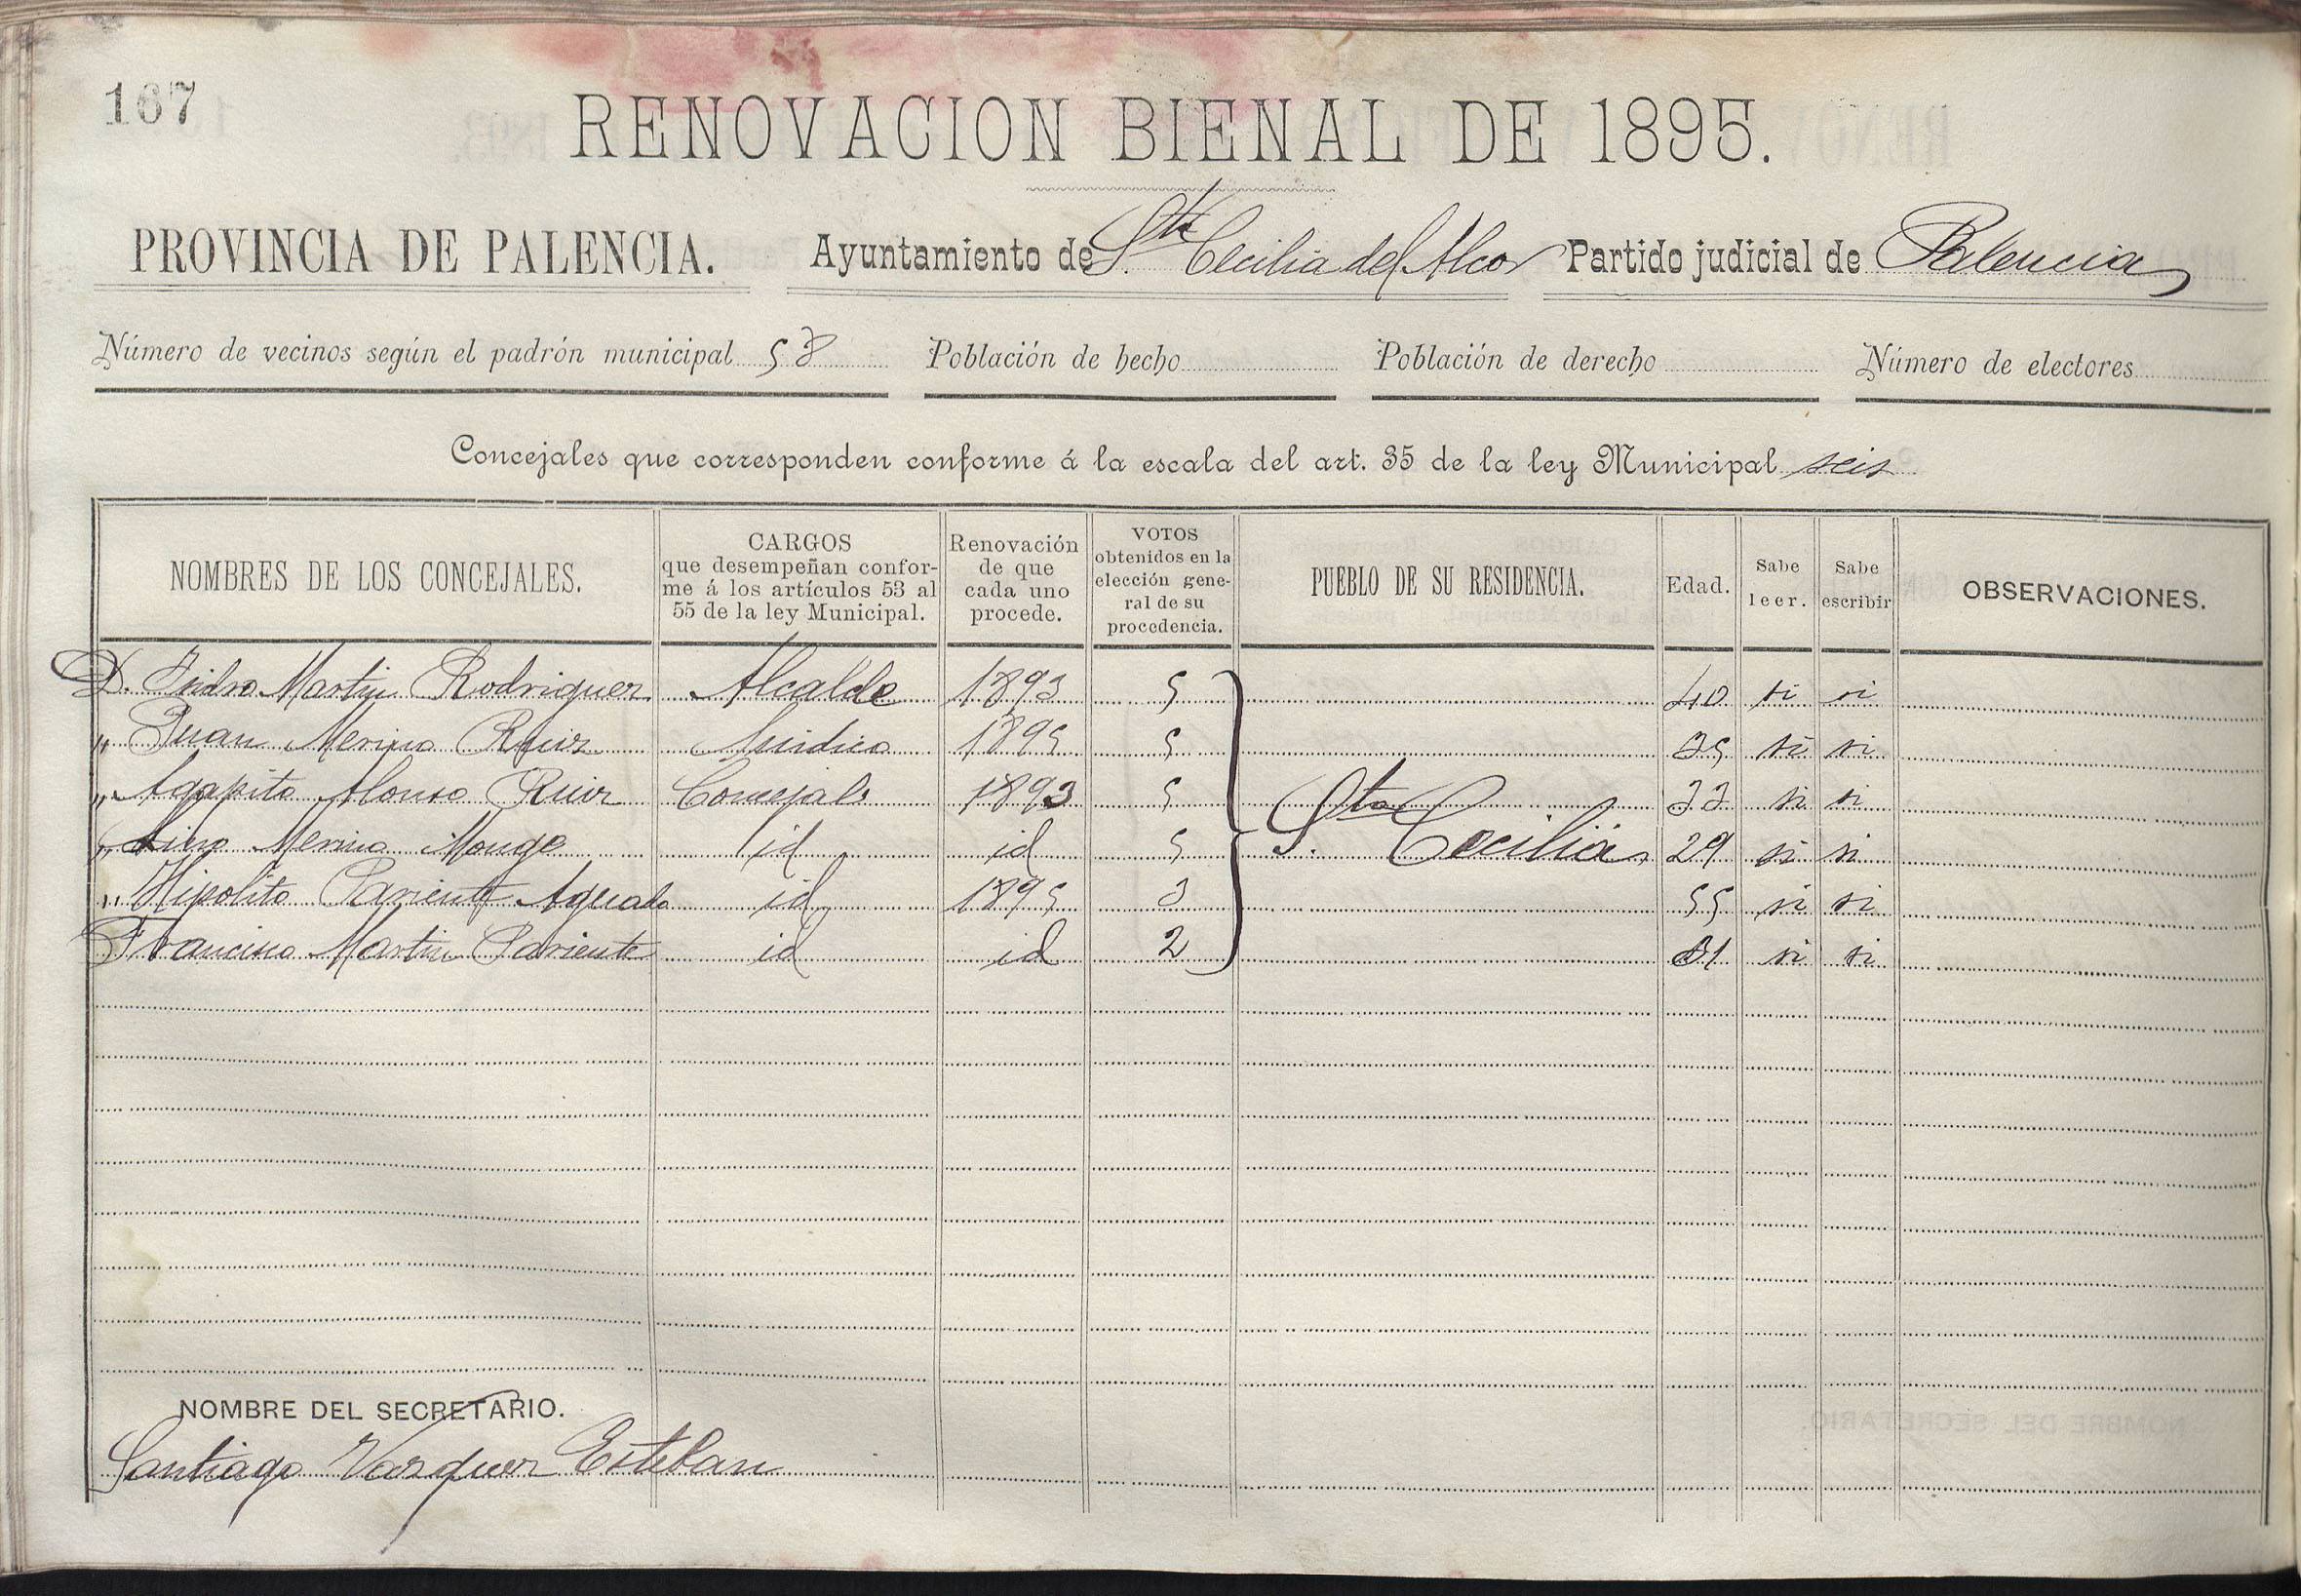 167
RENOVACION BIENAL DE 1895.
PROVINCIA DE PALENCIA. Ayuntamiento de Sta. Cecilia del Alcor Partido judicial de Palencia
Número de vecinos según el padrón municipal 58 Población de hecho Población de derecho Número de electores
Concejales que corresponden conforme á la escala del art. 35 de la ley Municipal seis
NOMBRES DE LOS CONCEJALES.
CARGOS
que desempeñan confor-
me á los artículos 53 al
55 de la ley Municipal.
Renovación
de que
cada uno
procede.
VOTOS
obtenidos en la
elección gene-
ral de su
procedencia.
PUEBLO DE SU RESIDENCIA.
Edad.
Sabe
leer.
Sabe
escribir
OBSERVACIONES.
D. Isidro Martin Rodriguez Alcalde 1893 5 40 si si
" Juan Merino Ruiz Sindico 1895 5 35 si si
" Agapito Alonso Ruiz Concejal 1893 5 33 si si
" Merino Monge id id 5 Sta. Cecilia 29 si si
" Hipolito Pariente Aguado id 1895 3 55 si si
Francisco Martin Pariente id id 2 31 si si
NOMBRE DEL SECRETARIO.
Santiago Vazquez Esteban